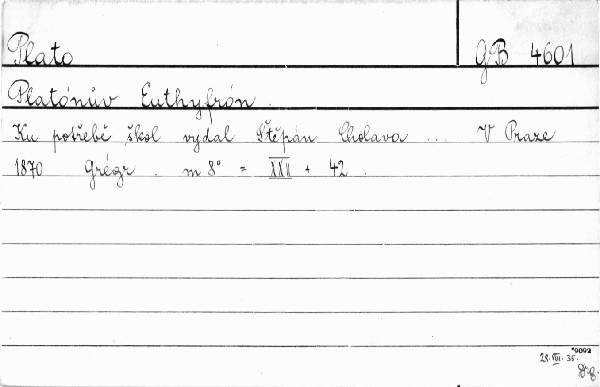 Plato GB 4601
Platónův Euthyfrón.
Ku potřebě škol vydal Štěpán Cholava ... V Praze
1870 Grégr. m 8° = XXII + 42.
*9092
28. VIII. 35.